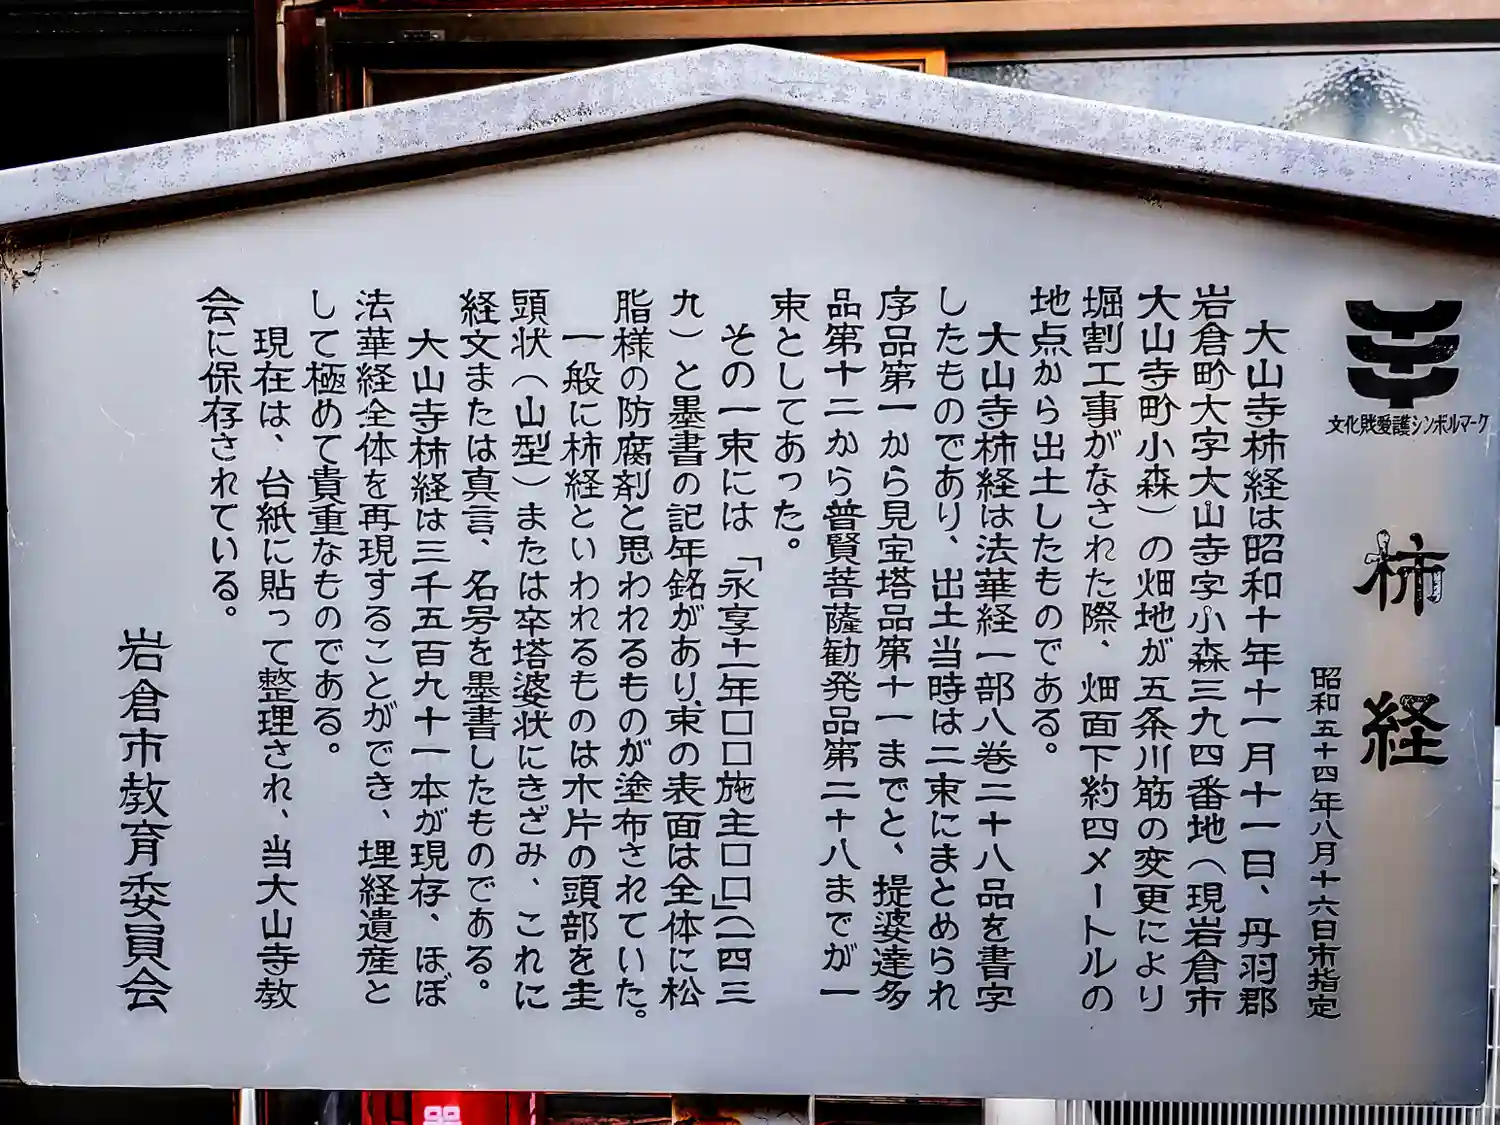 文化財愛護シンボルマーク
柿経
昭和五十四年八月十六日市指定
大山寺柿経は昭和十年十一月十一日、丹羽郡
岩倉町大字大山寺字小森三九四番地（現岩倉市
大山寺町小森）の畑地が五条川筋の変更により
堀割工事がなされた際、畑面下約四メートルの
地点から出土したものである。
大山寺柿経は法華経一部八巻二十八品を書字
したものであり、出土当時は二束にまとめられ
序品第一から見宝塔品第十一までと、提婆達多
品第十二から普賢菩薩勧発品第二十八までが一
束としてあった。
その一束には「永享十一年口口施主口口」（一四三
九）と墨書の記年銘があり、束の表面は全体に松
脂様の防腐剤と思われるものが塗布されていた。
一般に柿経といわれるものは木片の頭部を圭
頭状（山型）または卒塔婆状にきざみ、これに
経文または真言、名号を墨書したものである。
大山寺柿経は三千五百九十一本が現存、ほぼ
法華経全体を再現することができ、埋経遺産と
して極めて貴重なものである。
現在は、台紙に貼って整理され、当大山寺教
会に保存されている。
岩倉市教育委員会